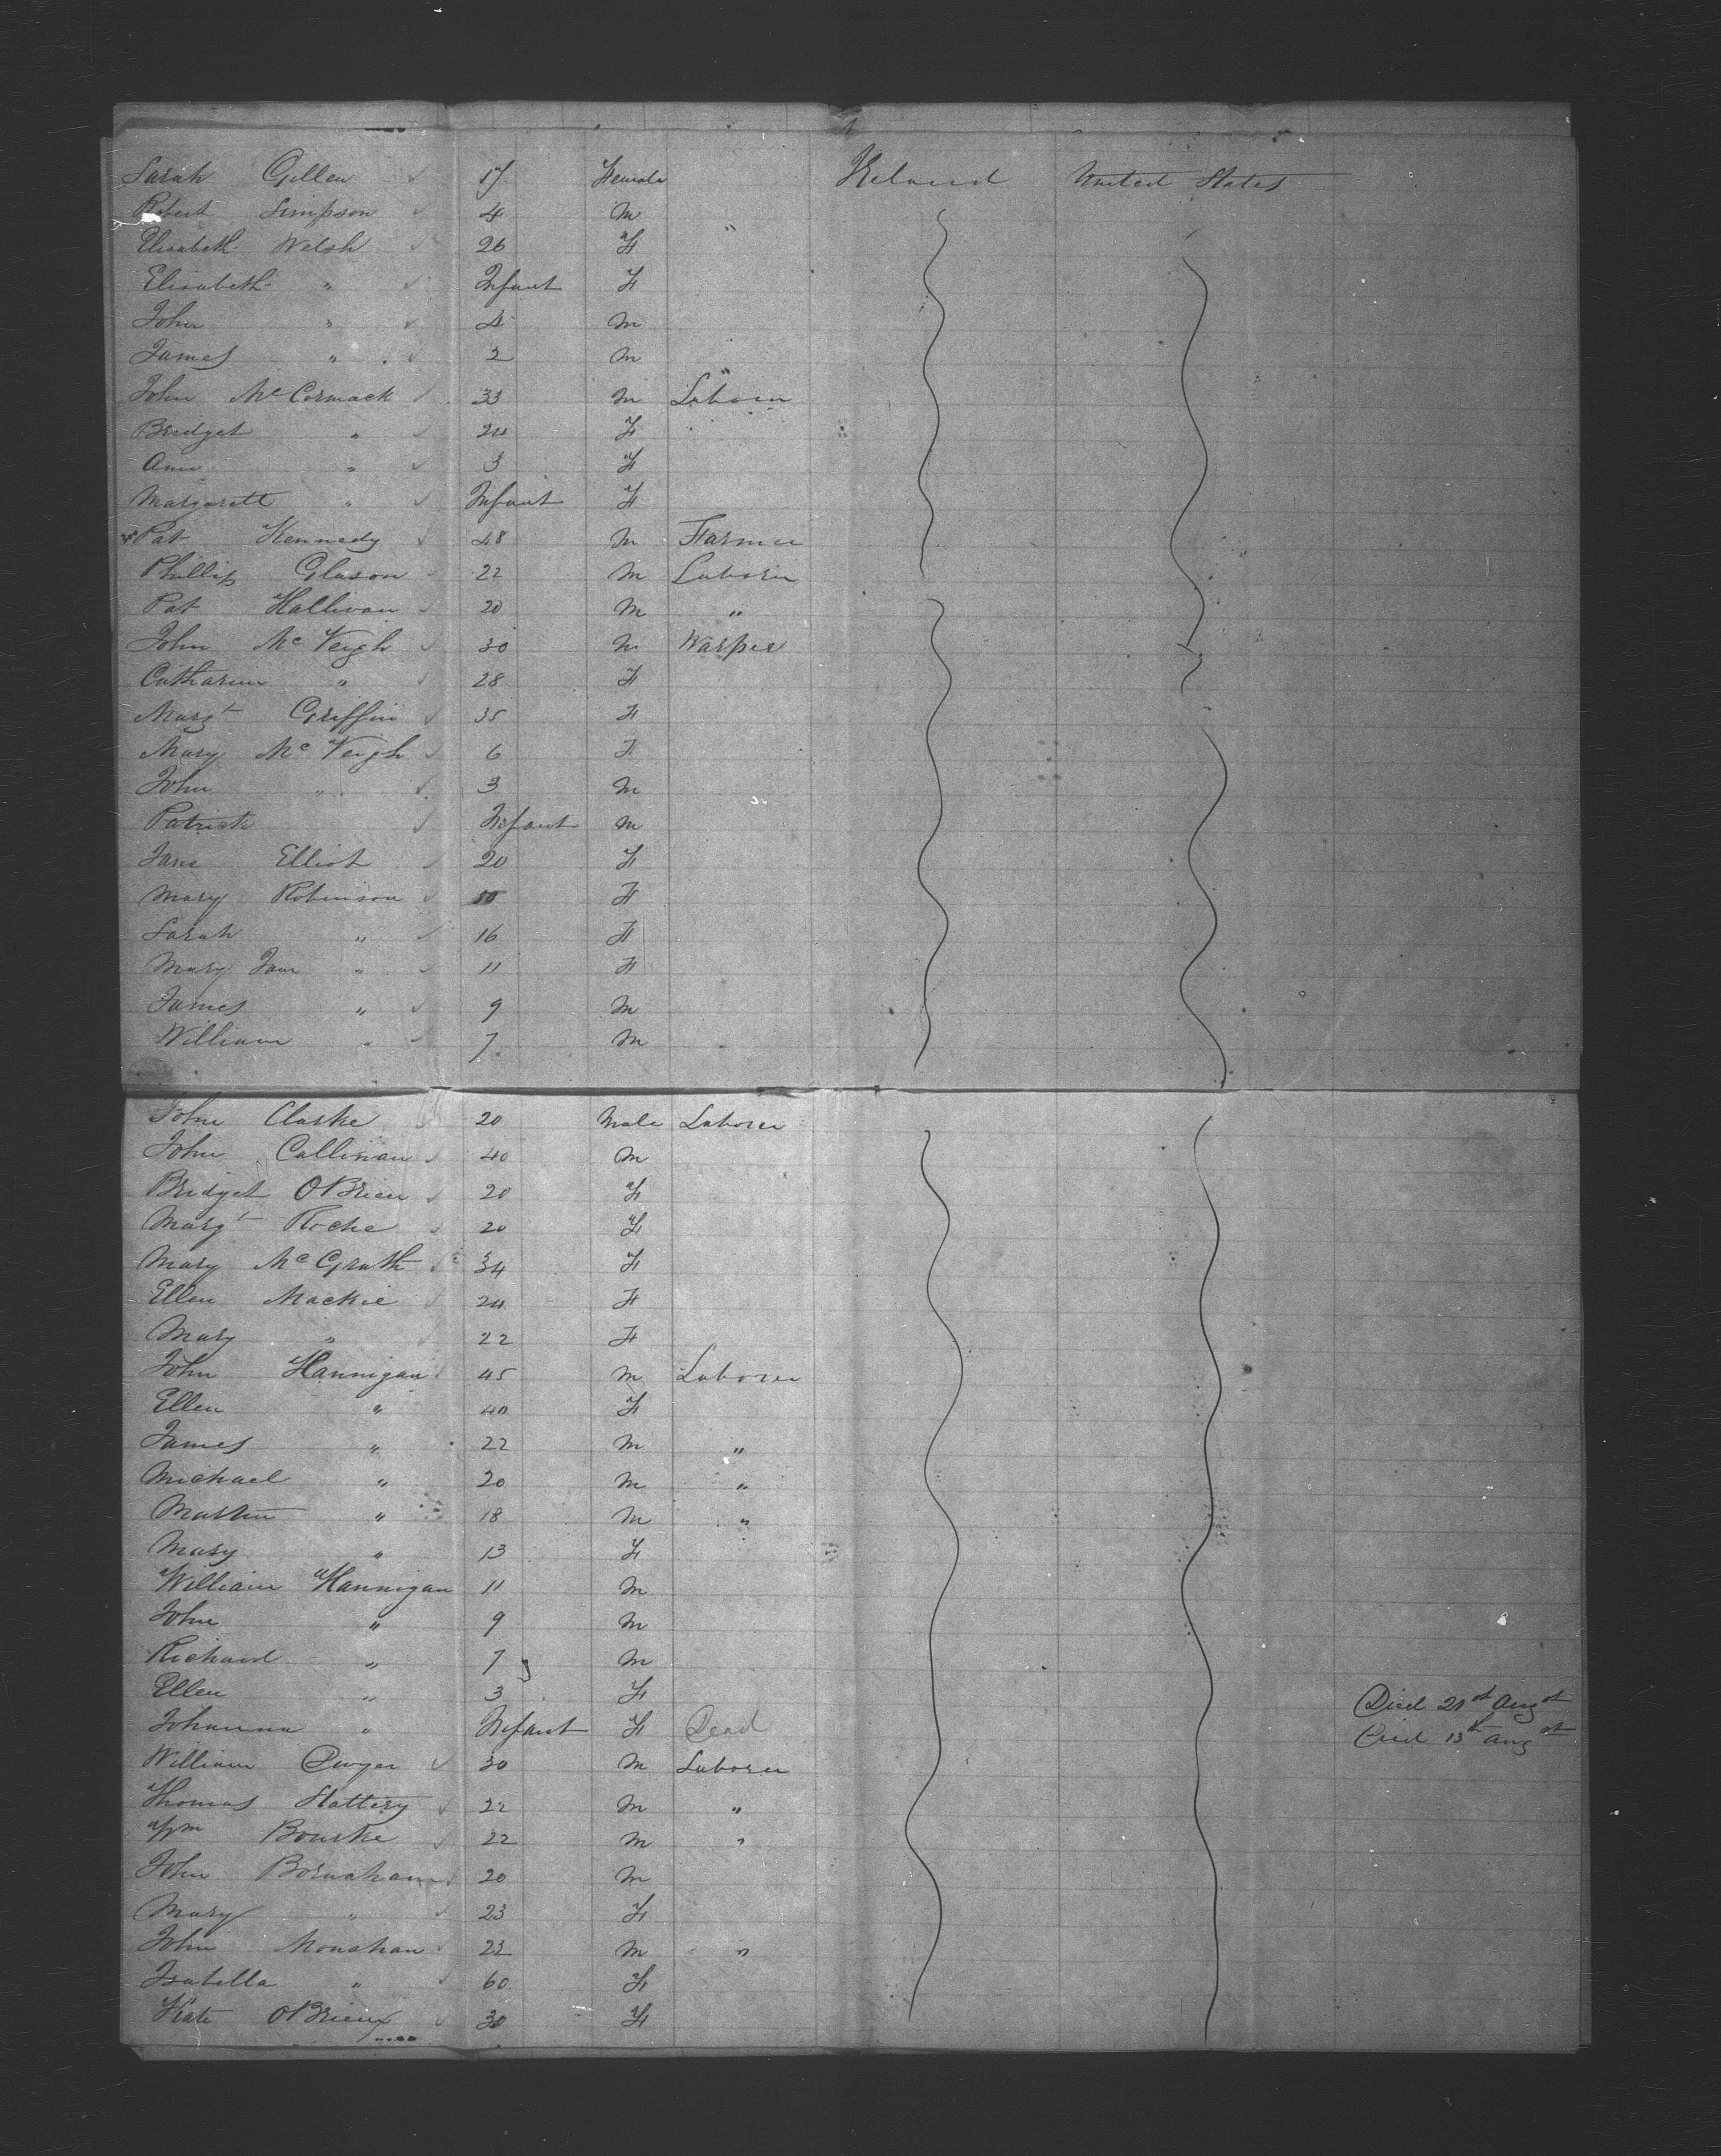 Sarah Gillen 17 Female Ireland United States
Robert Simpson 4 m "
Elisabeth Welsh 26 F
Elisabeth " Infant F
John " 4 m
James " 2 m
John McCormack 33 m Laborer
Bridget " 24 F
Ann " 3 F
Margarett " Infant F
Pat Kennedy 48 m Farmer
Phillip Glason 22 m Laborer
Pat Hallivan 20 m "
John McVeigh 30 m Warper
Catharine " 28 F
Margt Griffin 35 F
Mary McVeigh 6 F
John " 3 m
Patrick Infant m
Jane Elliot 20 F
Mary Robinson 50 F
Sarah " 16 F
Mary Jane " 11 F
James " 9 m
William " 7 m
John Clarke 20 Male Laborer
John Callinan 40 m
Bridget OBrien 20 F
Margt Roche 20 F
Mary McGrath 34 F
Ellen Mackie 24 F
Mary " 22 F
John Hannigan 45 m Laborer
Ellen " 40 F
James " 22 m "
Michael " 20 m "
Martin " 18 m "
Mary " 13 F
William Hannigan 11 m
John " 9 m
Richard " 7 m
Ellen " 3 F Died 21st Augst
Johanna " Infant F Dead Died 13th Augst
William Dwyer 30 m Laborer
Thomas Slattery 22 m "
Wm Bourke 22 m "
John 20 m
Mary " 23 F
John Monahan 22 m "
Isabella " 60 F
Kate OBrien 30 F